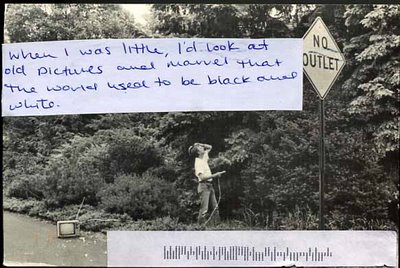 When I was little, I'd look at
old pictures and marvel that
the world used to be black and
white.
NO
OUTLET